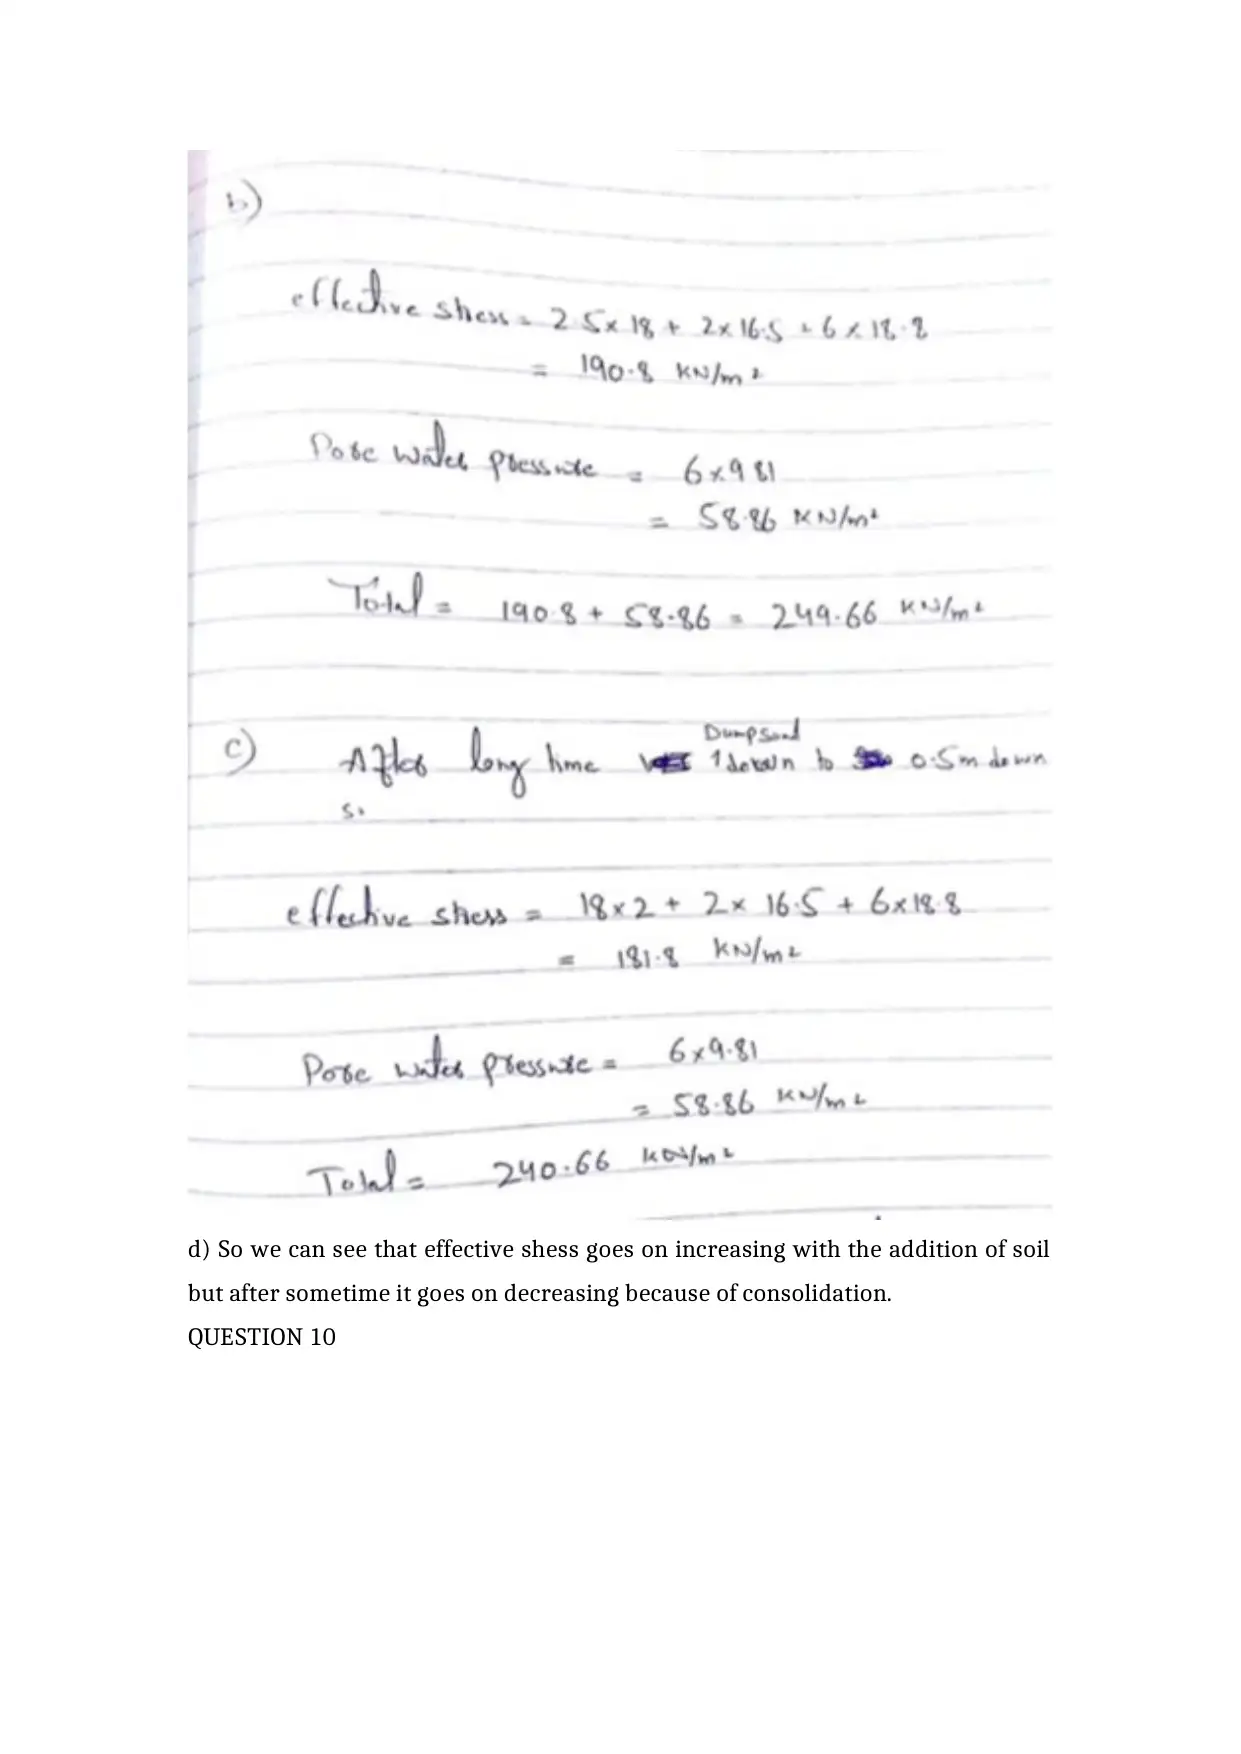 b)
effective stress = 2.5 x 18 + 2 x 16.5 + 6 x 18.8
= 190.8 KN/m²
Pore water pressure = 6 x 9.81
= 58.86 KN/m²
Total = 190.8 + 58.86 = 249.66 KN/m²
Dump sand
c) After long time 1 down to 0.5m down
so
effective stress = 18 x 2 + 2 x 16.5 + 6 x 18.8
= 181.8 KN/m²
Pore water pressure = 6 x 9.81
= 58.86 KN/m²
Total = 240.66 KN/m²
d) So we can see that effective shess goes on increasing with the addition of soil
but after sometime it goes on decreasing because of consolidation.
QUESTION 10